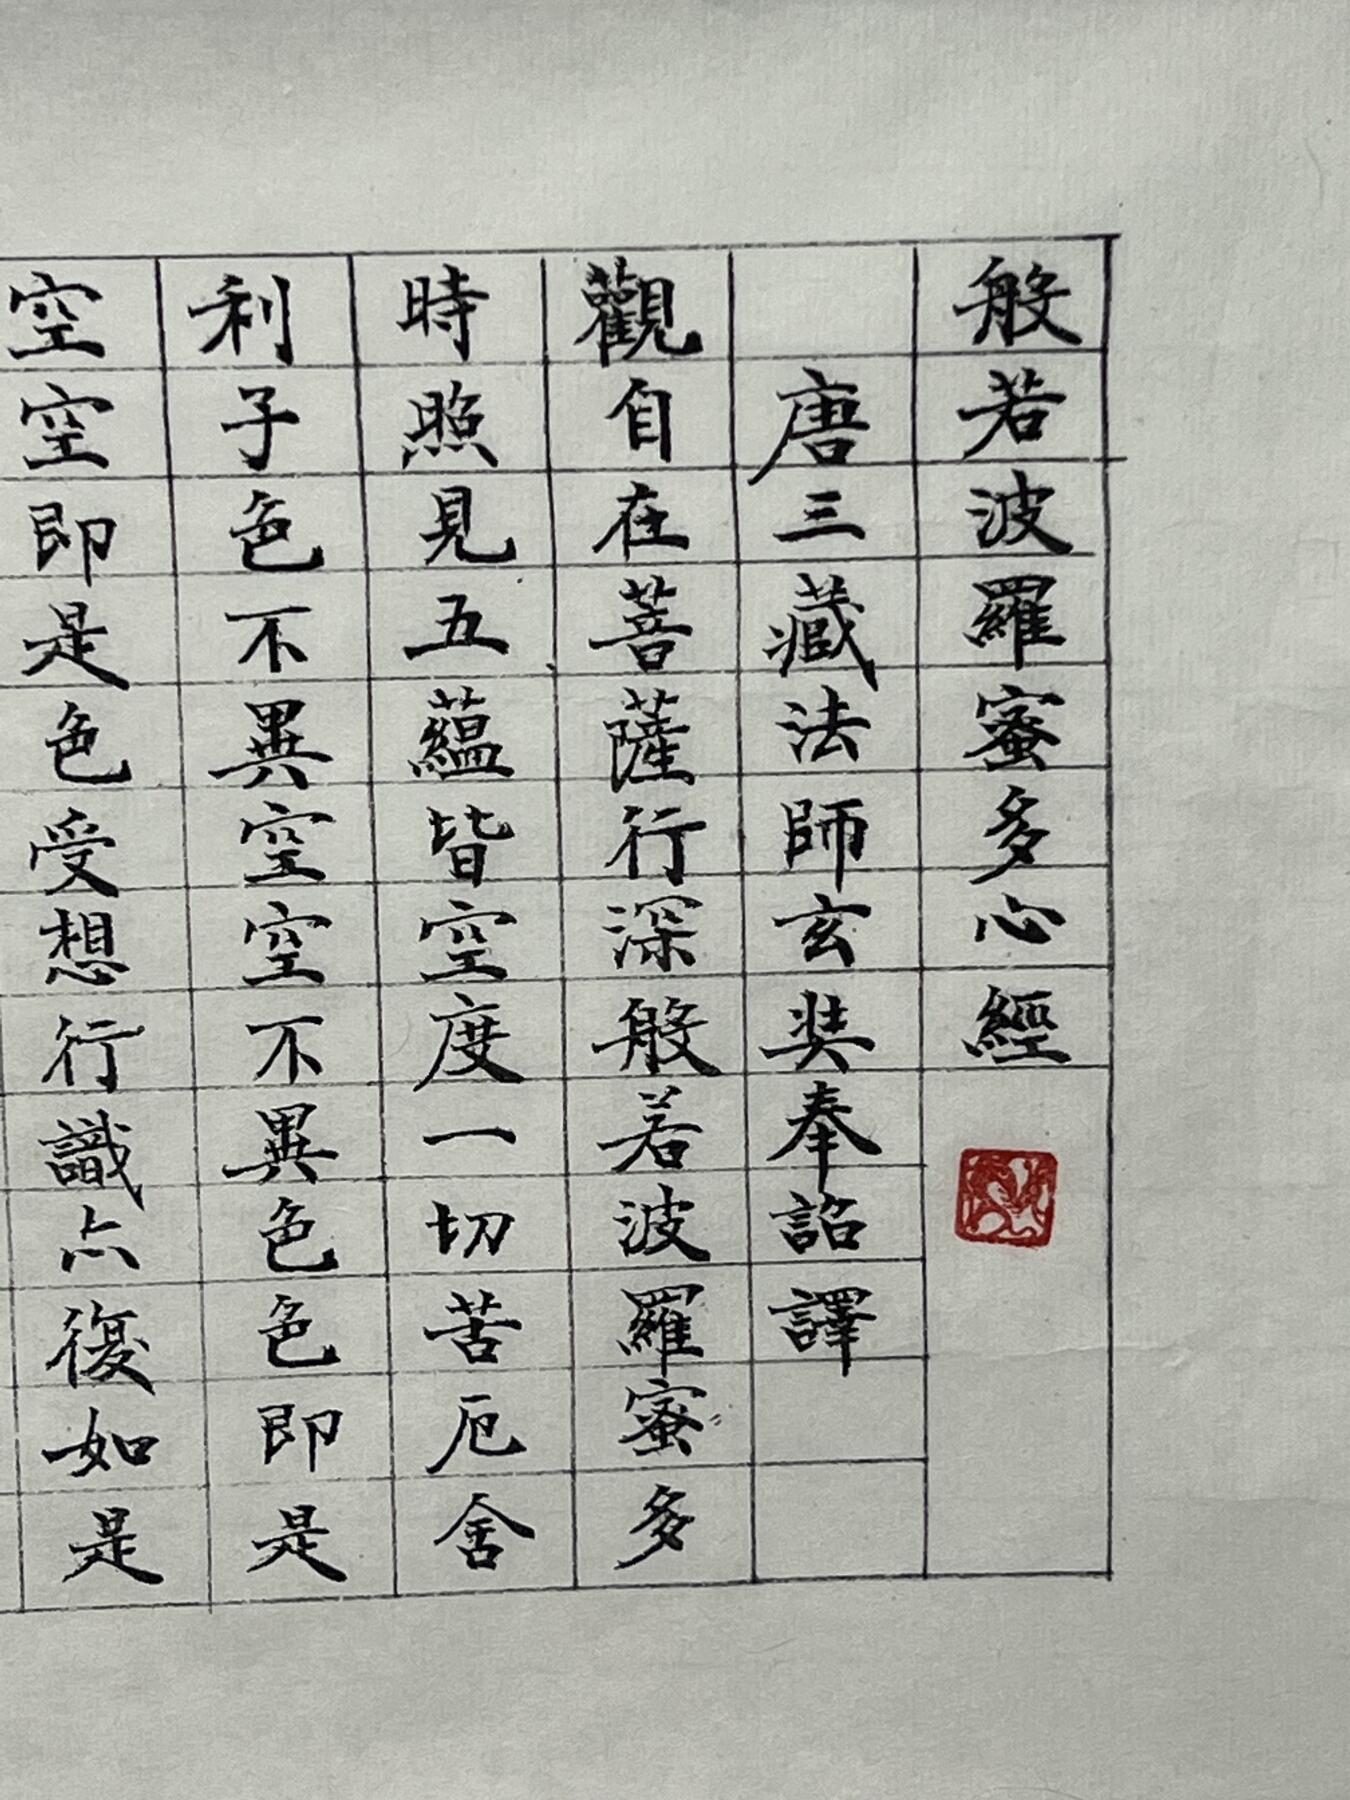 般若波羅蜜多心經
唐三藏法師玄奘奉詔譯
觀自在菩薩行深般若波羅蜜多
時照見五蘊皆空度一切苦厄舍
利子色不異空空不異色色即是
空空即是色受想行識亦復如是